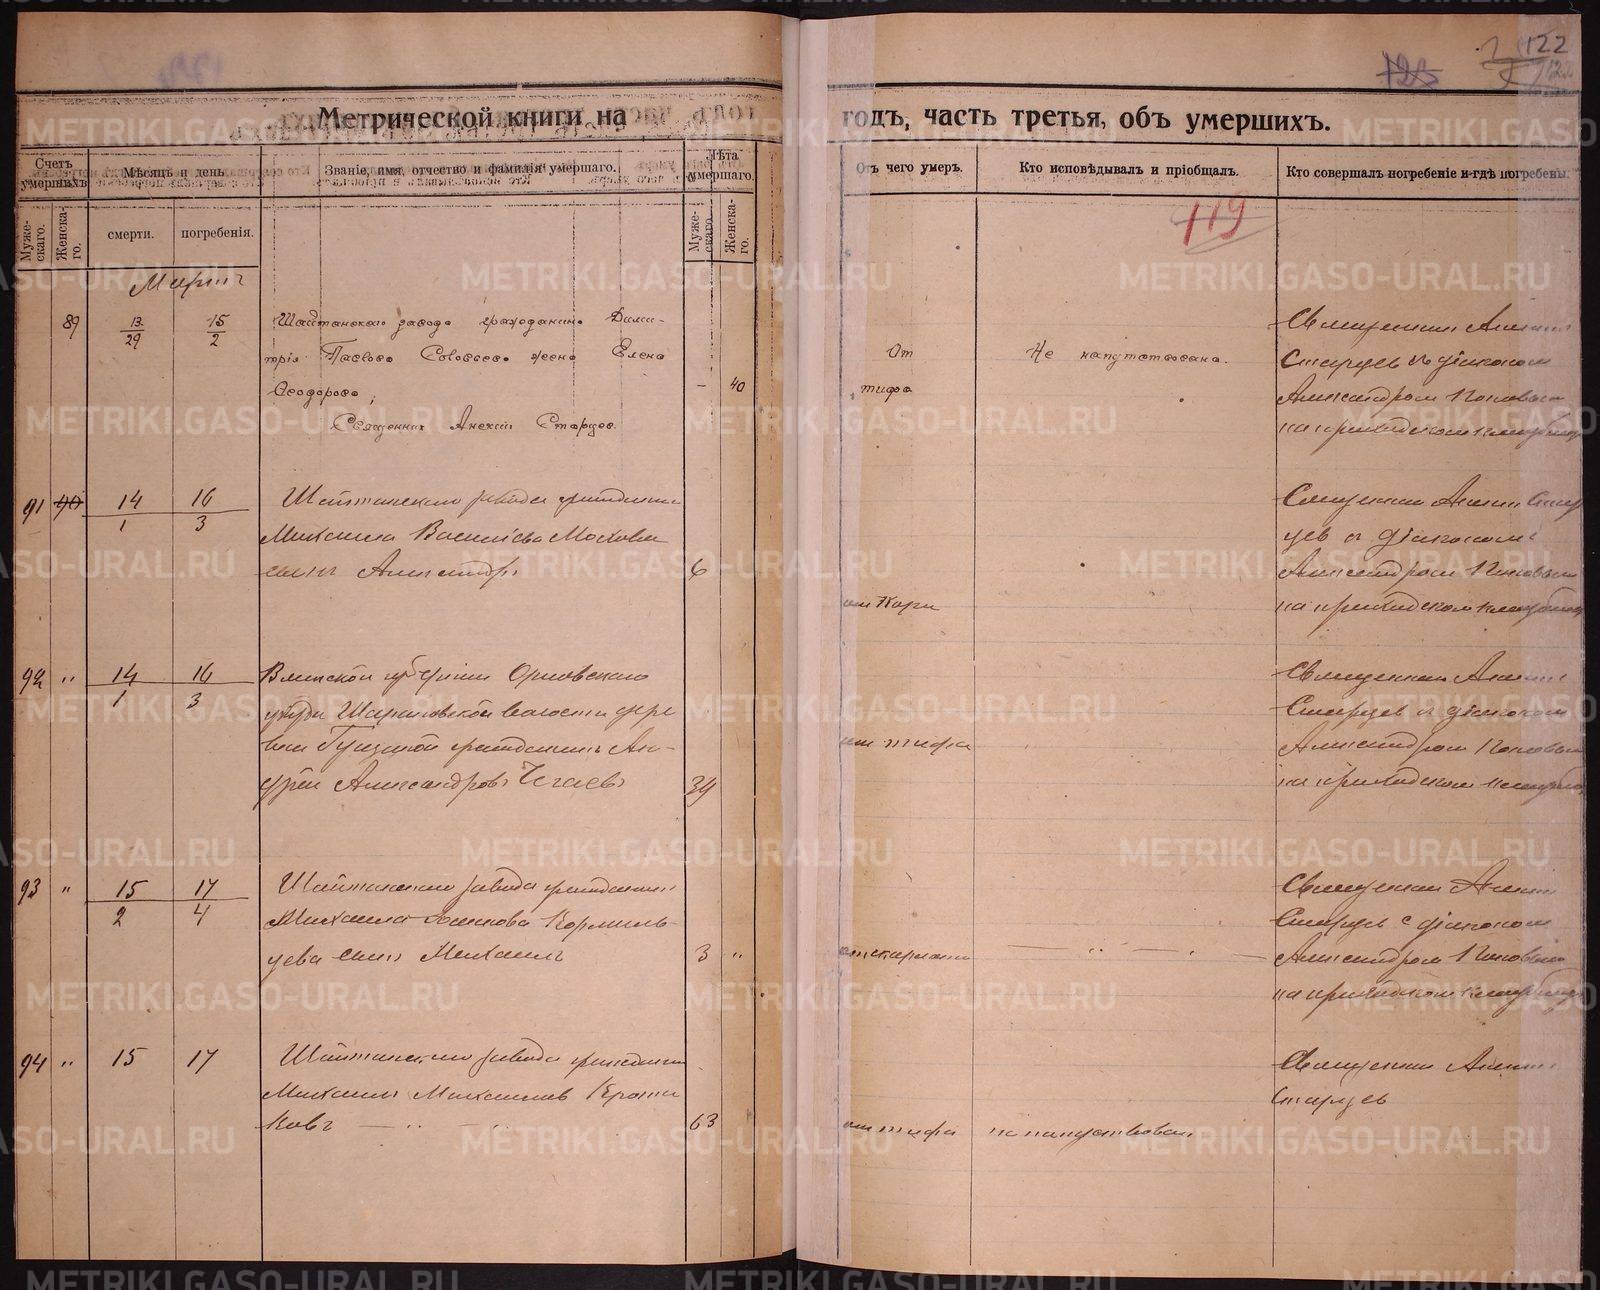 122
125
119
Метрической книги на
годъ, часть третья, объ умершихъ.
Счетъ умершихъ.
Мѣсяцъ и день
Званіе, имя, отчество и фамилія умершаго.
Лѣта умершаго.
Отъ чего умеръ.
Кто исповѣдывалъ и пріобщалъ.
Кто совершалъ погребеніе и гдѣ погребены.
Муже-
скаго.
Женска-
го.
смерти.
погребенія.
Муже-
скаго.
Женска-
го.
Мартъ
89
13
29
15
2
Шайтанскаго завода гражданина Дими-
трія Павлова Соловьева жена Елена
Ѳеодорова
40
Священник Алексій Старцев.
От
тифа
Не напутствована.
Священник Алексій
Старцев с діаконом
Александром Поповым
на приходском кладбище
91
90
14
1
16
3
Шайтанскаго завода гражданина
Михаила Васильева
сынъ Александръ
6
от Кори
Священник Алексій Стар
цев с діакономъ
Александром Поповым
на приходском кладбище
92
"
14
1
16
3
Вятской губерніи Орловскаго
уѣзда волости дере
вни гражданинъ Ан-
дрей Александровъ
34
от тифа
Священник Алексій
Старцев с діаконом
Александром Поповым
на приходском кладбище
93
"
15
2
17
4
Шайтанскаго завода гражданина
Михаила Кормиль-
цева сынъ Михаилъ
3
"
от скарлатины
Священник Алексій
Старцев с діаконом
Александром Поповым
на приходском кладбище
94
"
15
17
Шайтанскаго завода гражданин
Михаилъ Михаилов
ковъ
63
от тифа
не напутствован
Священник Алексій
Старцев
METRIKI.GASO-URAL.RU